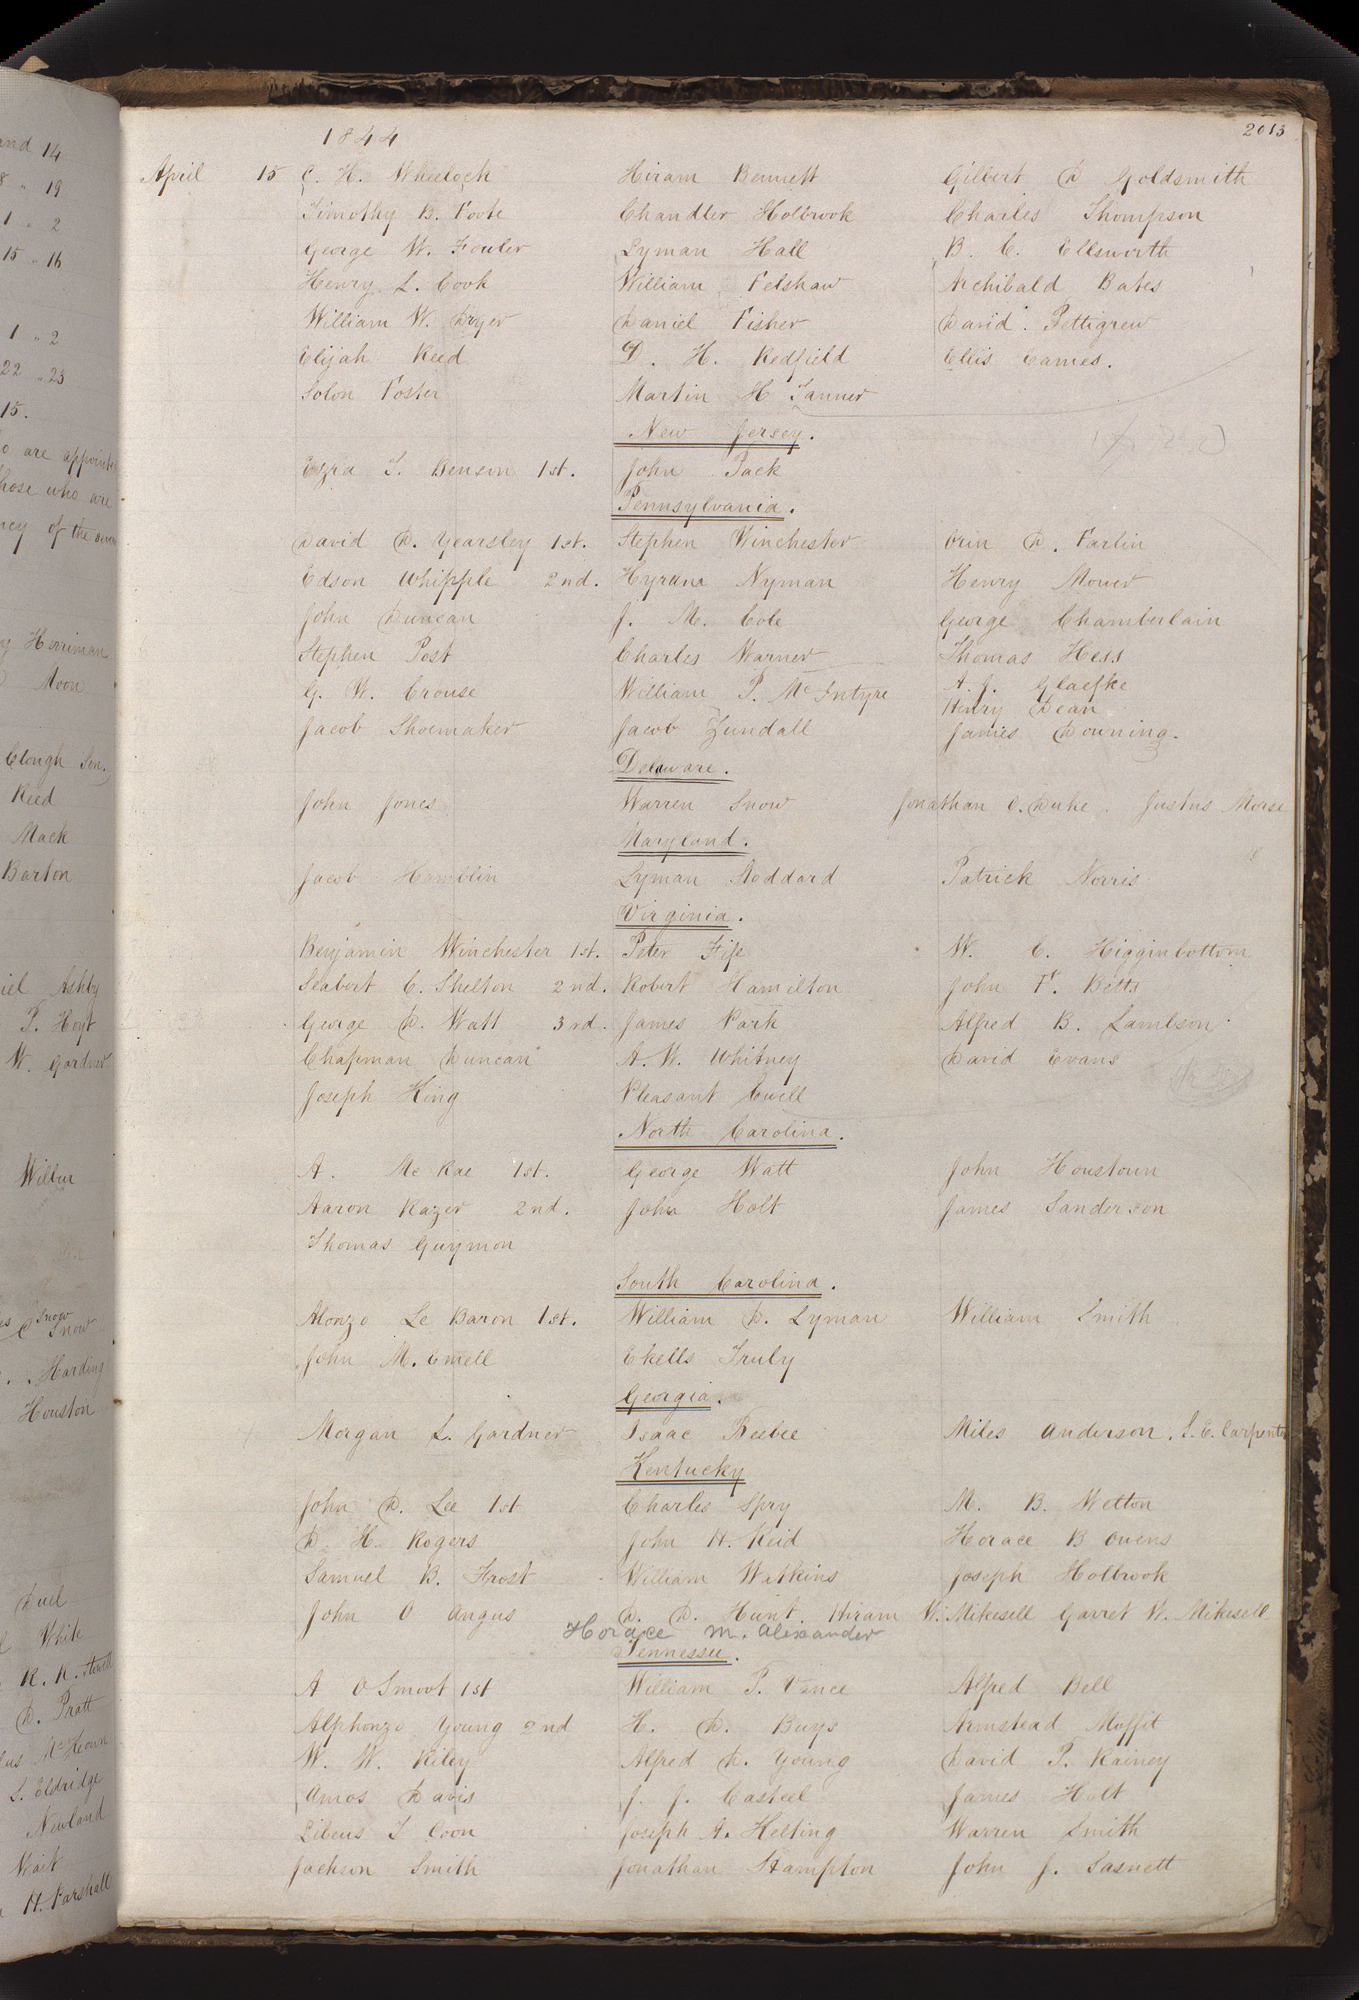 1844 2013
April 15 C. H. Wheelock Hiram Bennett Gilbert D Goldsmith
Timothy B. Foote Chandler Holbrook Charles Thompson
George W. Fowler Lyman Hall B. C. Ellsworth
Henry L. Cook William Felshaw Archibald Bates
William W. Dryer Daniel Fisher David Pettigrew
Elijah Reed D. H. Redfield Ellis Eames.
Solon Foster Martin H Tanner
New Jersey.
Ezra T. Benson 1st. John Pack
Pennsylvania.
David D. Yearsley 1st. Stephen Winchester Orin D. Farlin
Edson Whipple 2nd. Hyrum Nyman Henry Mower
John Duncan J. M. Cole George Chamberlain
Stephen Post Charles Warner Thomas Hess
G. W. Crouse William P. McIntyre A. J. Glaefke
Henry Dean
Jacob Shoemaker Jacob Zundall James Downing.
Delaware.
John Jones Warren Snow Jonathan O. Duke. Justus Morse
Maryland.
Jacob Hamblin Lyman Stoddard Patrick Norris
Virginia.
Benjamin Winchester 1st. Peter Fife W. E. Higginbottom
Seabert C. Shelton 2nd. Robert Hamilton John F. Betts
George D. Watt 3rd. James Park Alfred B. Lambson
Chapman Duncan A. W. Whitney David Evans
Joseph King Pleasant Ewell
North Carolina.
A. McRae 1st. George Watt John Houstoun
Aaron Razer 2nd. John Holt James Sanderson
Thomas Guymon
South Carolina.
Alonzo Le Baron 1st. William D. Lyman William Smith
John M. Emell Ekells Truly
Georgia.
Morgan L. Gardner Isaac Beebee Miles Anderson. S. E. Carpenter
Kentucky
John D. Lee 1st Charles Spry M. B. Welton
D. H. Rogers John H. Reid Horace B Owens
Samuel B. Frost William Watkins Joseph Holbrook
John O Angus D. D. Hunt. Hiram W. Mikesell Garret W. Mikesell
Horace M. Alexander
Tennessee.
A O Smoot 1st William P. Vance Alfred Bell
Alphonzo Young 2nd H. D. Buys Armstead Moffit
W. W. Riley Alfred D. Young David P. Rainey
Amos Davis J. J. Casteel James Holt
Libeus T Coon Joseph A. Kelting Warren Smith
Jackson Smith Jonathan Stampton John J. Sasnett